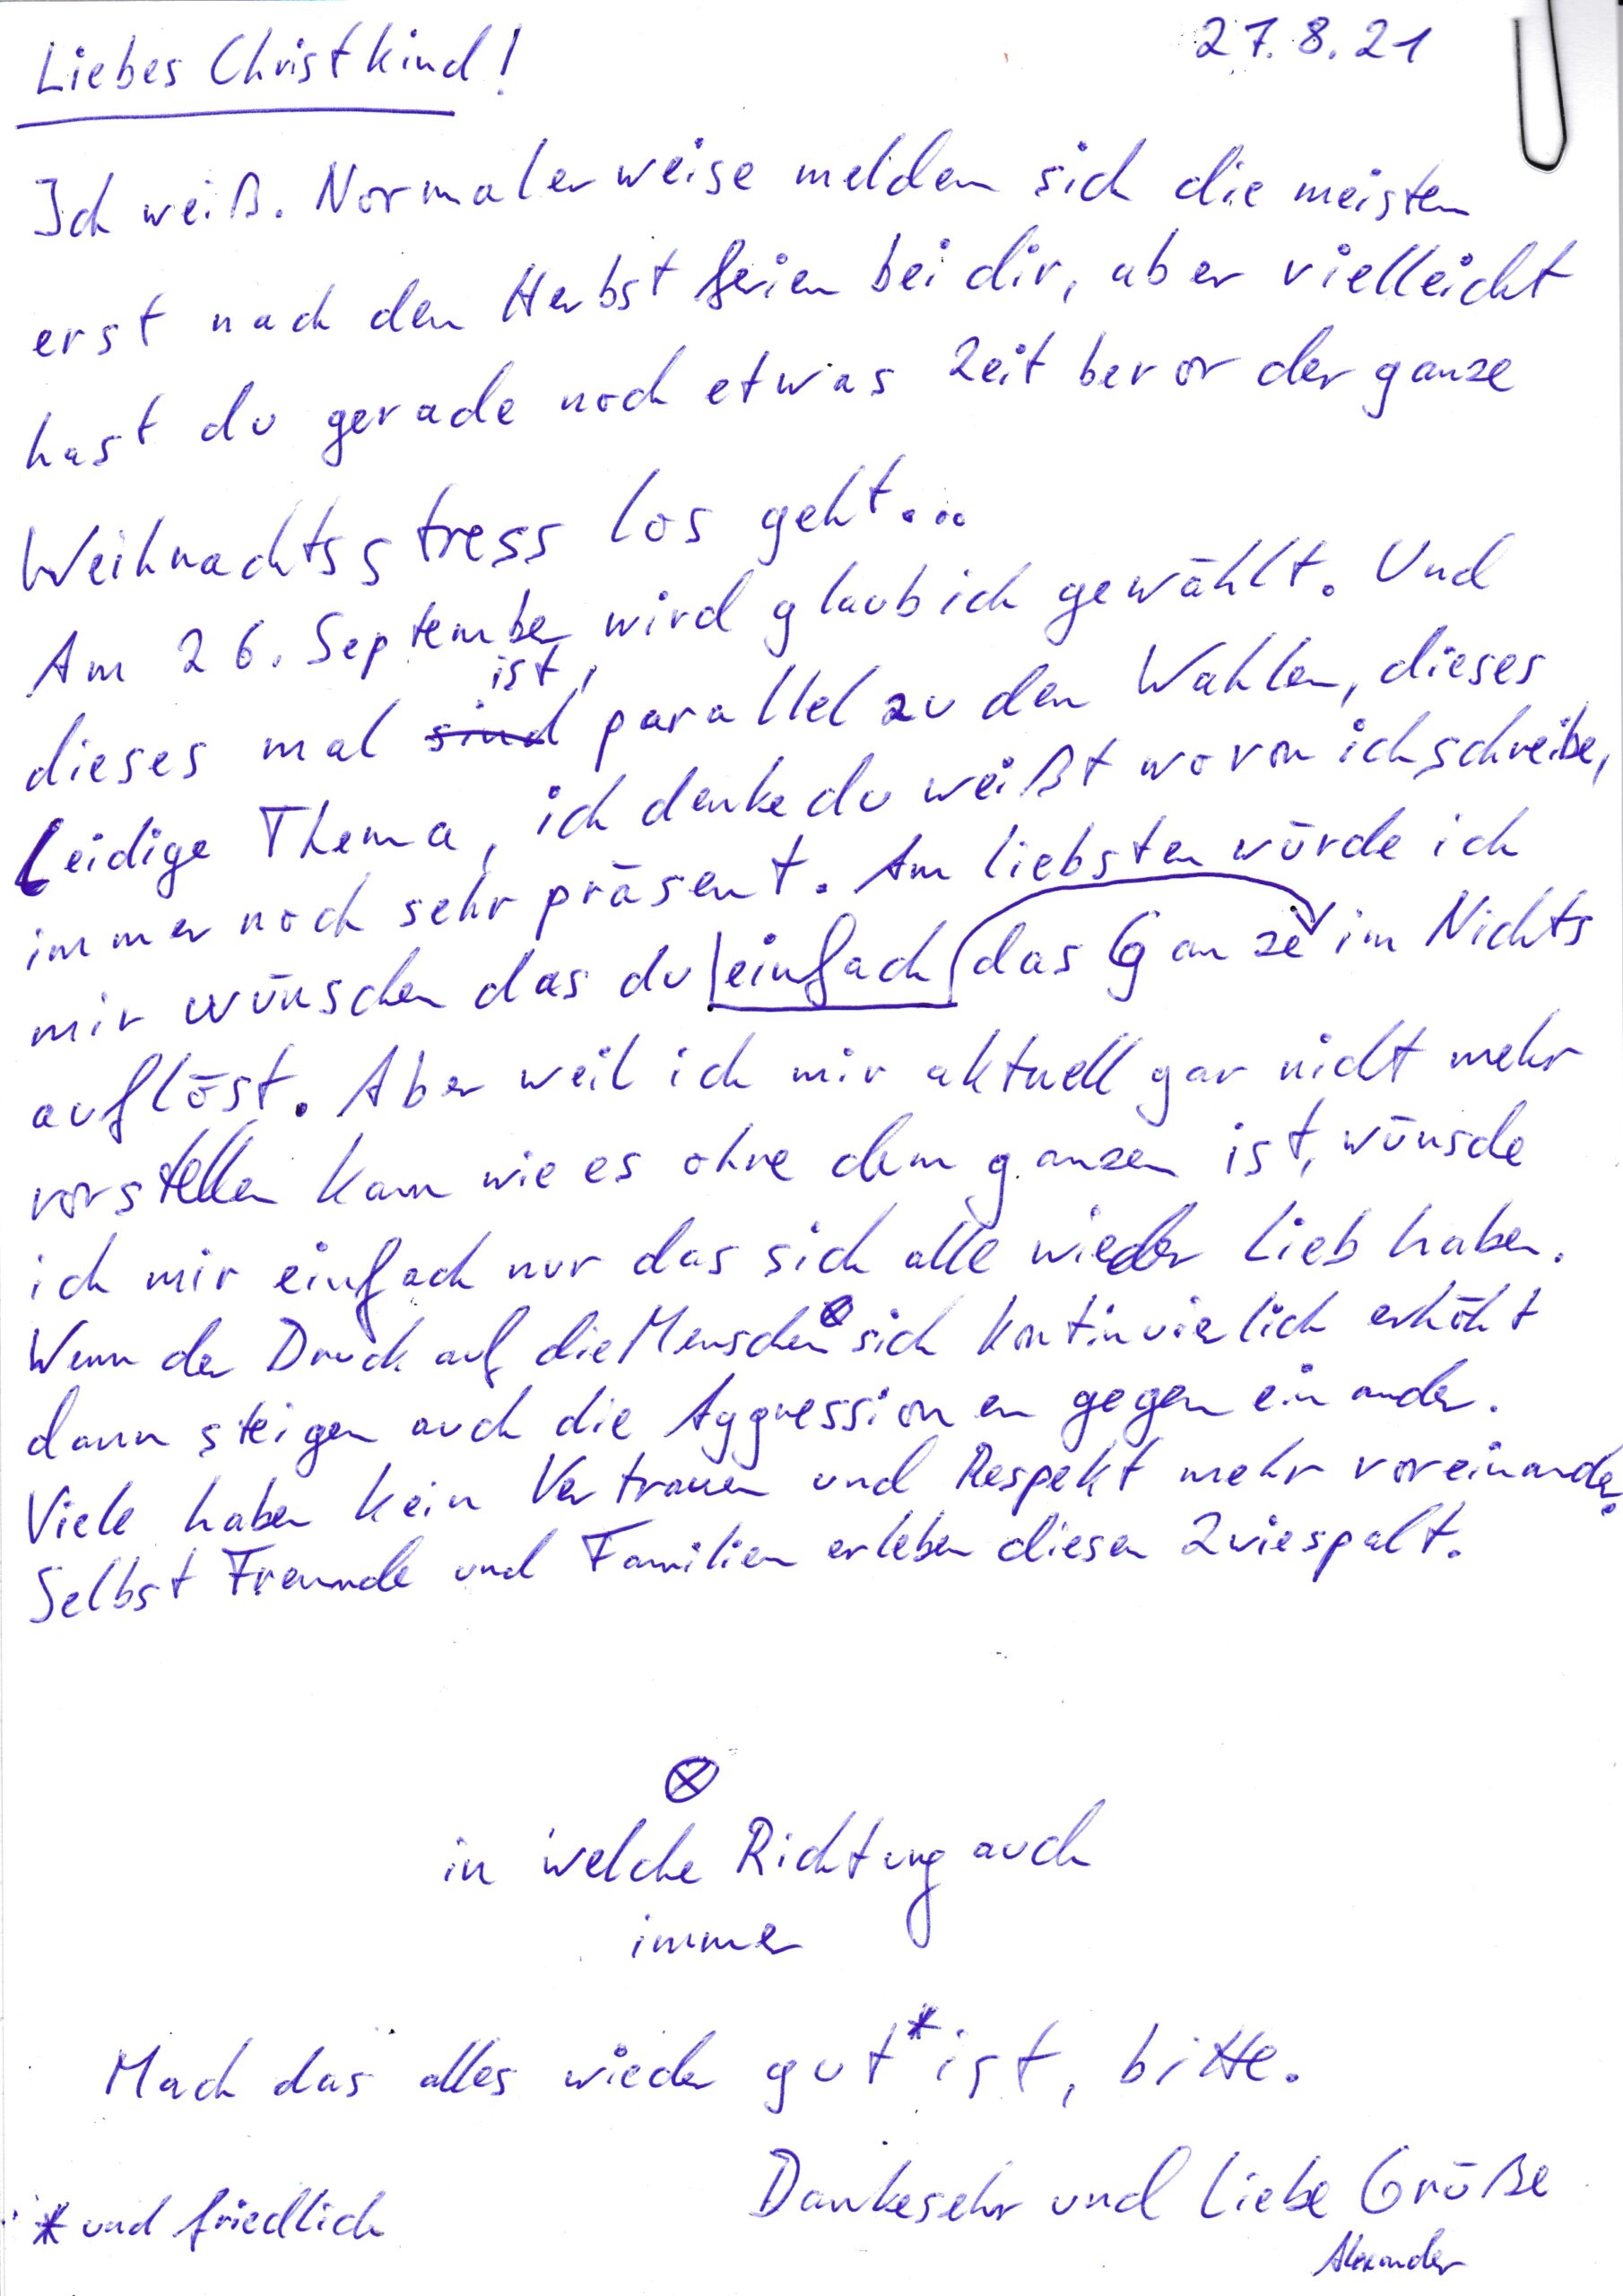 27.8.21
Liebes Christkind!
Ich weiß. Normalerweise melden sich die meisten
erst nach den Herbstferien bei dir, aber vielleicht
hast du gerade noch etwas Zeit bevor der ganze
Weihnachtsstress los geht...
Am 26. September wird glaub ich gewählt. Und
dieses mal sind ist, parallel zu den Wahlen, dieses
leidige Thema, ich denke du weißt wovon ich schreibe,
immer noch sehr präsent. Am liebsten würde ich
mir wünschen das du einfach das Ganze im Nichts
auflöst. Aber weil ich mir aktuell gar nicht mehr
vorstellen kann wie es ohne dem ganzen ist, wünsche
ich mir einfach nur das sich alle wieder lieb haben.
Wenn der Druck auf die Menschen ⊗ sich kontinuierlich erhöht
dann steigen auch die Aggressionen gegen einander.
Viele haben kein Vertrauen und Respekt mehr voreinander.
Selbst Freunde und Familien erleben diesen Zwiespalt.
⊗
in welche Richtung auch
immer
Mach das alles wieder gut* ist, bitte.
Dankesehr und liebe Grüße
* und friedlich
Alexander